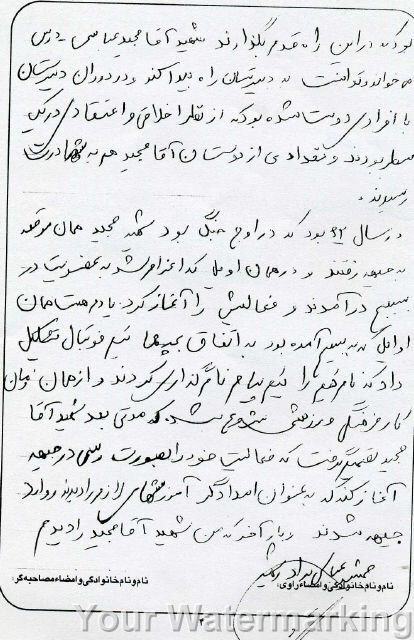 بود که در این راه قدم بگذارند شهید آقا مجید عباسی درس
می خواند و توانست به دبیرستان راه پیدا کند و در دوران دبیرستان
با افرادی دوست شده بود که از نظر اخلاقی و اعتقادی در یک
سطح بودند و تعدادی از دوستان آقا مجید هم به شهادت
رسیدند.
در سال ۶۲ بود که در اوج جنگ بود شهید مجید همان موقع
به جبهه رفتند و در همان اوایل که اعزام شد به عضویت در
بسیج درآمدند و فعالیتش را آغاز کرد. یادم هست همان
اوایل که به بسیم آمده بود به اتفاق بچه‌ها تیم فوتبال تشکیل
داد که نام تیم را تیم پیام نامگذاری کردند و از همان زمان
کار فرهنگی ورزشی شروع شد. که مدتی بعد شهید آقا
مجید تصمیم گرفت که فعالیت خود را بصورت رسمی در جبهه
آغاز کند که به عنوان امدادگر آموزشهای لازم را دیدند و وارد
جبهه شدند و بار آخر که من شهید آقا مجید را دیدم
جمشید عباسی برادر شهید
نام ونام خانوادگی وامضاء راوی: نام ونام خانوادگی وامضاء مصاحبه گر:
Your Watermarking